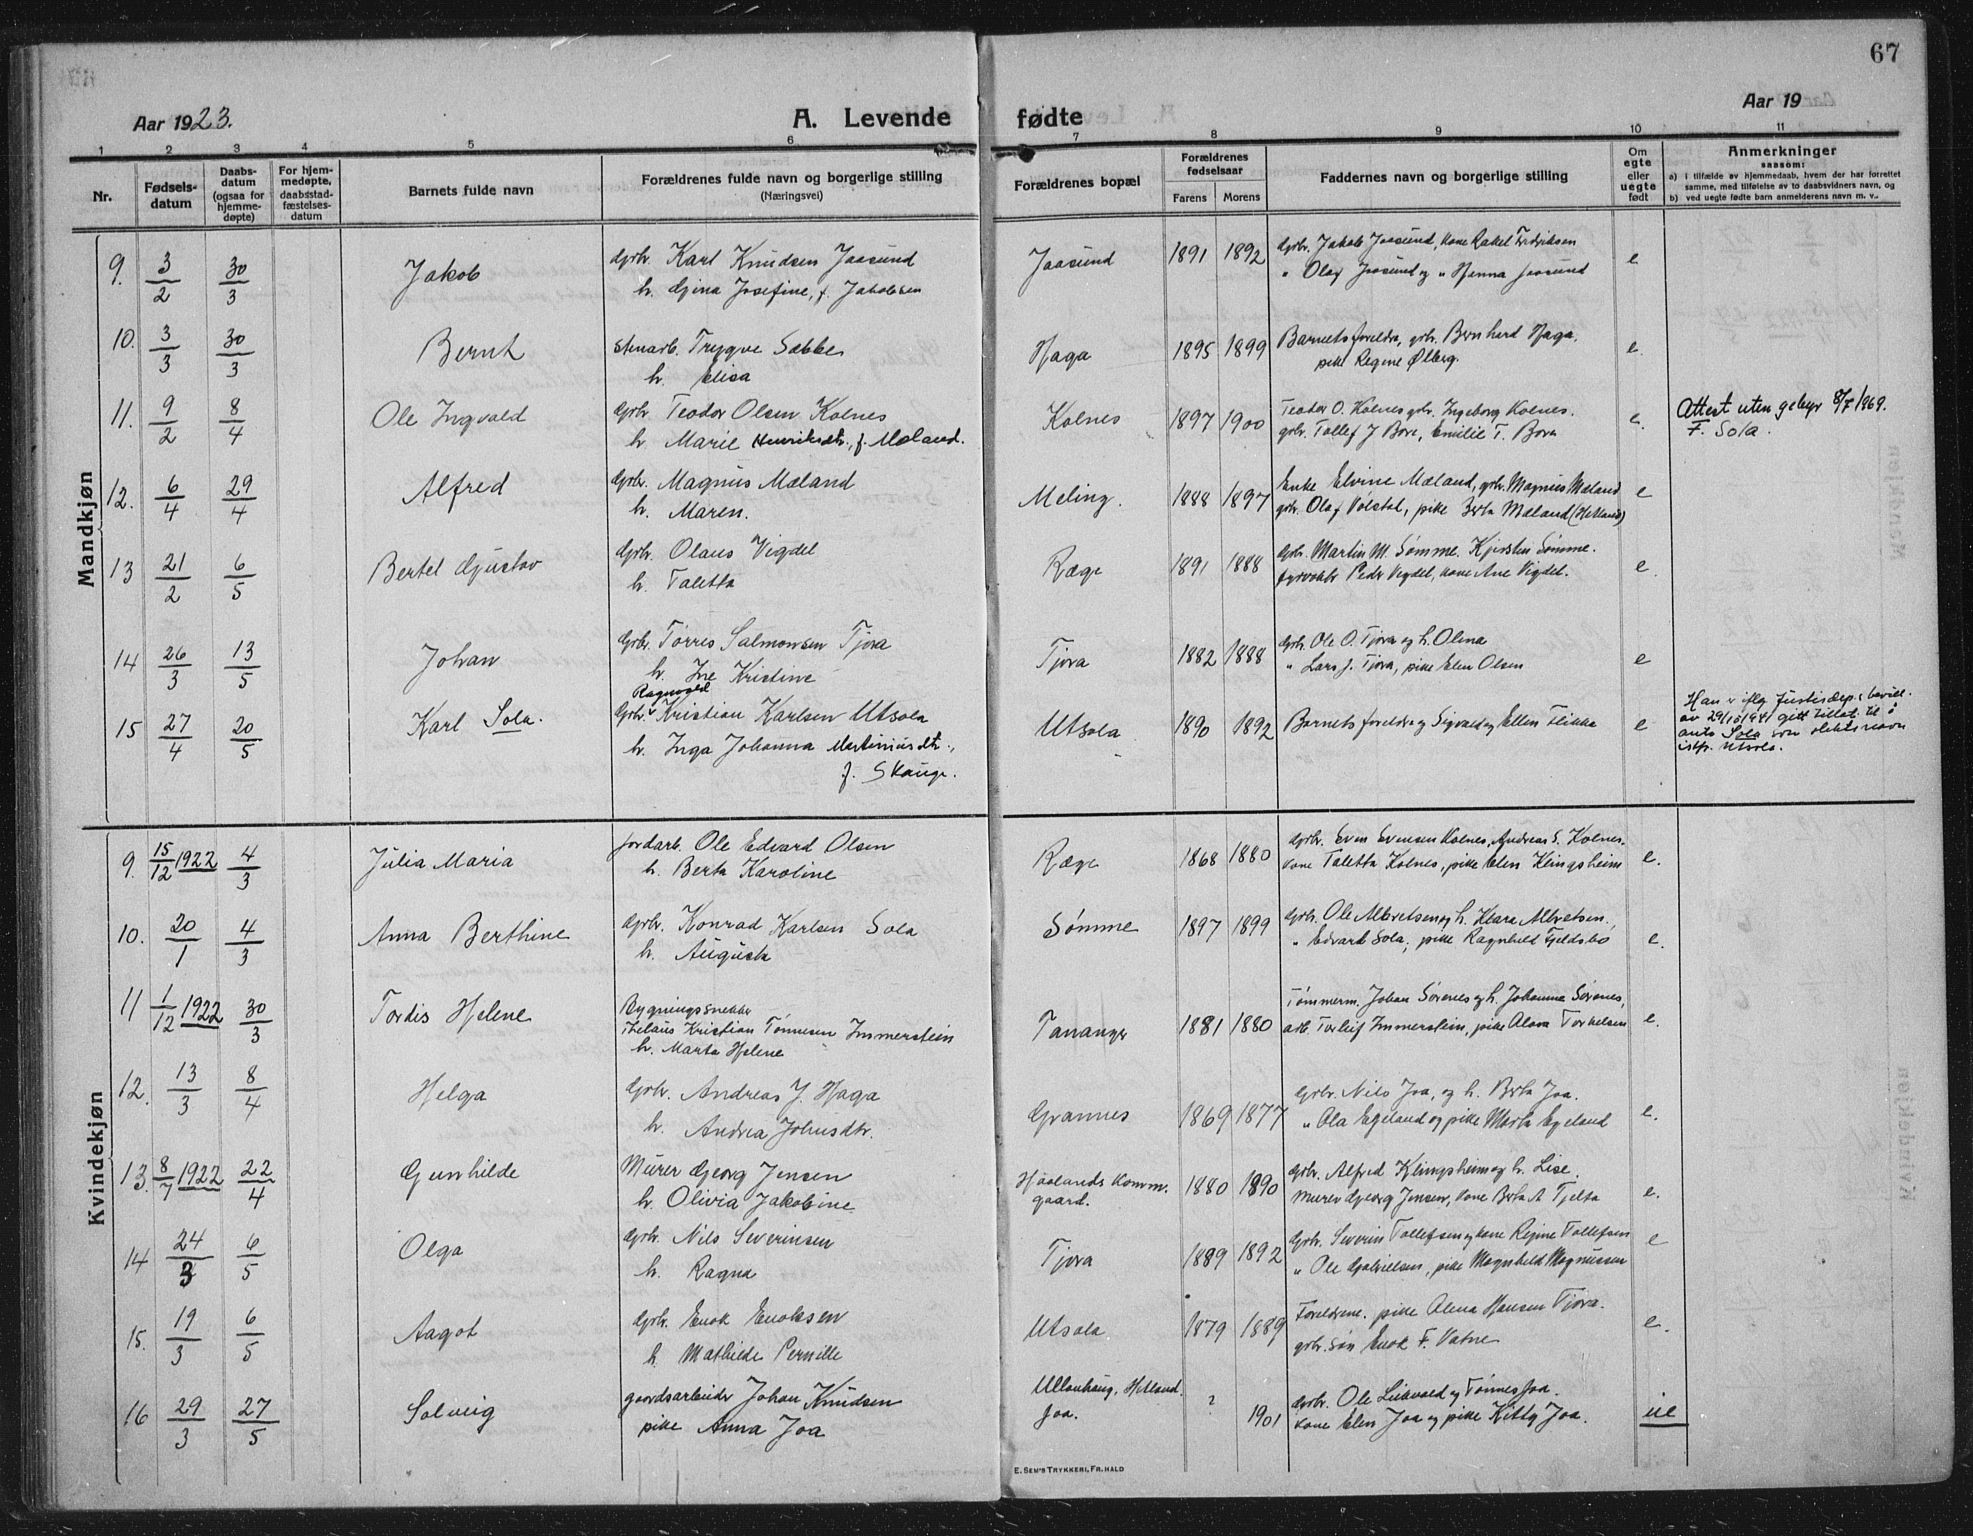 67
Aar 1923.
A. Levende fødte
Aar 19
1 2 3 4 5 6 7 8 9 10 11
Nr.
Fødsels-
datum
Daabs-
datum
(ogsaa for
hjemme-
døpte)
For hjem-
medøpte,
daabsstad-
fæstelses-
datum
Barnets fulde navn
Forældrenes fulde navn og borgerlige stilling
(Næringsvei)
Forældrenes bopæl
Forældrenes
fødselsaar
Farens Morens
Faddernes navn og borgerlige stilling
Om
egte
eller
uegte
født
Anmerkninger
saasom:
a) i tilfælde av hjemmedaab, hvem der har forrettet
samme, med tilføielse av to daabsvidners navn, og
b) ved uegte fødte barn anmelderens navn m. v..
Mandkjøn
9. 3/2 30/3 Jakob gbr. Karl Knudsen Jaasund Jaasund 1891 1892 gbr. Jakob Jaasund, kone Rakel Fredriksen e
h. Gina Josefine, f. Jakobsen " Olaf Jaasund og " Hanna Jaasund
10. 3/3 30/3 Bernt stenarb. Trygve Sæbbe Haga 1895 1899 Barnets foreldre, gbr. Bernhard Haga, e.
h. Elisa pike Regine Ølberg.
11. 9/2 8/4 Ole Ingvald gbr. Teodor Olsen Kolnes Kolnes 1897 1900 Teodor O. Kolnes gbr. Ingeborg Kolnes. e. Attest uten gebyr 8/7 1969.
h. Marie Henriksdtr., f. Mæland. gbr. Tollef J Bore, Emilie T. Bore F. Sola.
12. 6/4 29/4 Alfred gbr. Magnus Mæland Meling. 1888 1897 Enke Elvine Mæland, gbr. Magnus Mæland e
h. Maren. gbr. Olaf Vølstad, pike Berta Mæland (Helland)
13 21/2 6/5 Bertel Gustav gbr. Olaus Vigdel Ræge 1891 1888 gbr. Martin M. Sømme. Kjersten Sømme. e
h. Taletta fyrvokter Peder Vigdel, kone Ane Vigdel.
14 26/3 13/5 Johan gbr. Tørres Salmonsen Tjora Tjora 1882 1888 gbr. Ole O. Tjora og h. Olena e
h. Ine Kristine " Lars J. Tjora, pike Elen Olsen
Ragnvald
15 27/4 20/5 Karl Sola. gbr. Kristian Karlsen Utsola Utsola 1890 1892 Barnets foreldre og Sigvald og Ellen Flikke e Han er iflg. Justisdep.s bevill.
h. Inga Johanna Martiniusdtr., av 29/10 1941 gitt tillat. til å
f. Skauge. anta Sola som slektsnavn
istf. Utsola.
Kvindekjøn
9. 15/12 1922 4/3 Julia Maria jordarb. Ole Edvard Olsen Ræge 1868 1880 gbr. Sven Svensen Kolnes, Andreas S. Kolnes. e.
h. Berta Karoline kone Taletta Kolnes, pike Elen Klingsheim
10. 20/1 4/3 Anna Berthine gbr. Konrad Karlsen Sola Sømme 1897 1899 gbr. Ole Albretsen og h. Klara Albretsen, e.
h. Augusta " Edvard Sola, pike Ragnhild Fjeldsbø
11 1/12 1922 30/3 Tordis Helene Bygningssnekker Tananger 1881 1880 Tømmerm. Johan Sørenes og h. Johanna Sørenes, e.
Kristian Tønnesen Immerstein arb. Torleif Immerstein, pike Alova Torkelsen
h. Marta Helene
12. 13/3 8/4 Helga gbr. Andreas J. Haga Grannes 1869 1877 gbr. Nils Joa, og h. Berta Joa. e.
h. Andrea Johnsdtr. " Ola Egeland og pike Marta Egeland
13. 8/7 1922 22/4 Gunhilde Murer Georg Jensen Haalands komm. 1880 1890 gbr. Alfred Klingsheim og h. Lise. e.
h. Olivia Jakobine gaard. murer Georg Jensen, kone Berta A Tjelta
14 24/3 6/5 Olga gbr. Nils Severinsen Tjora 1889 1892 gbr. Severin Tollefsen og kone Regine Tollefsen e
h. Ragna " Ole Gabrielsen, pike Magnhild Magnussen
15. 19/3 6/5 Aagot gbr. Enok Enoksen Utsola 1879 1889 Foreldrene. pike Alma Hansen Tjora. e.
h. Mathilde Pernille gbr. søn Enok F. Vatne
16 29/3 27/5 Solveig gaardsarbeider Johan Knudsen Ullanhaug, Hetland. ? gbr. Ole Liknald og Tønnes Joa. ue
pike Anna Joa Joa. 1901 kone Elen Joa og pike Kitty Joa.
E. SEM'S TRYKKERI, FR.HALD